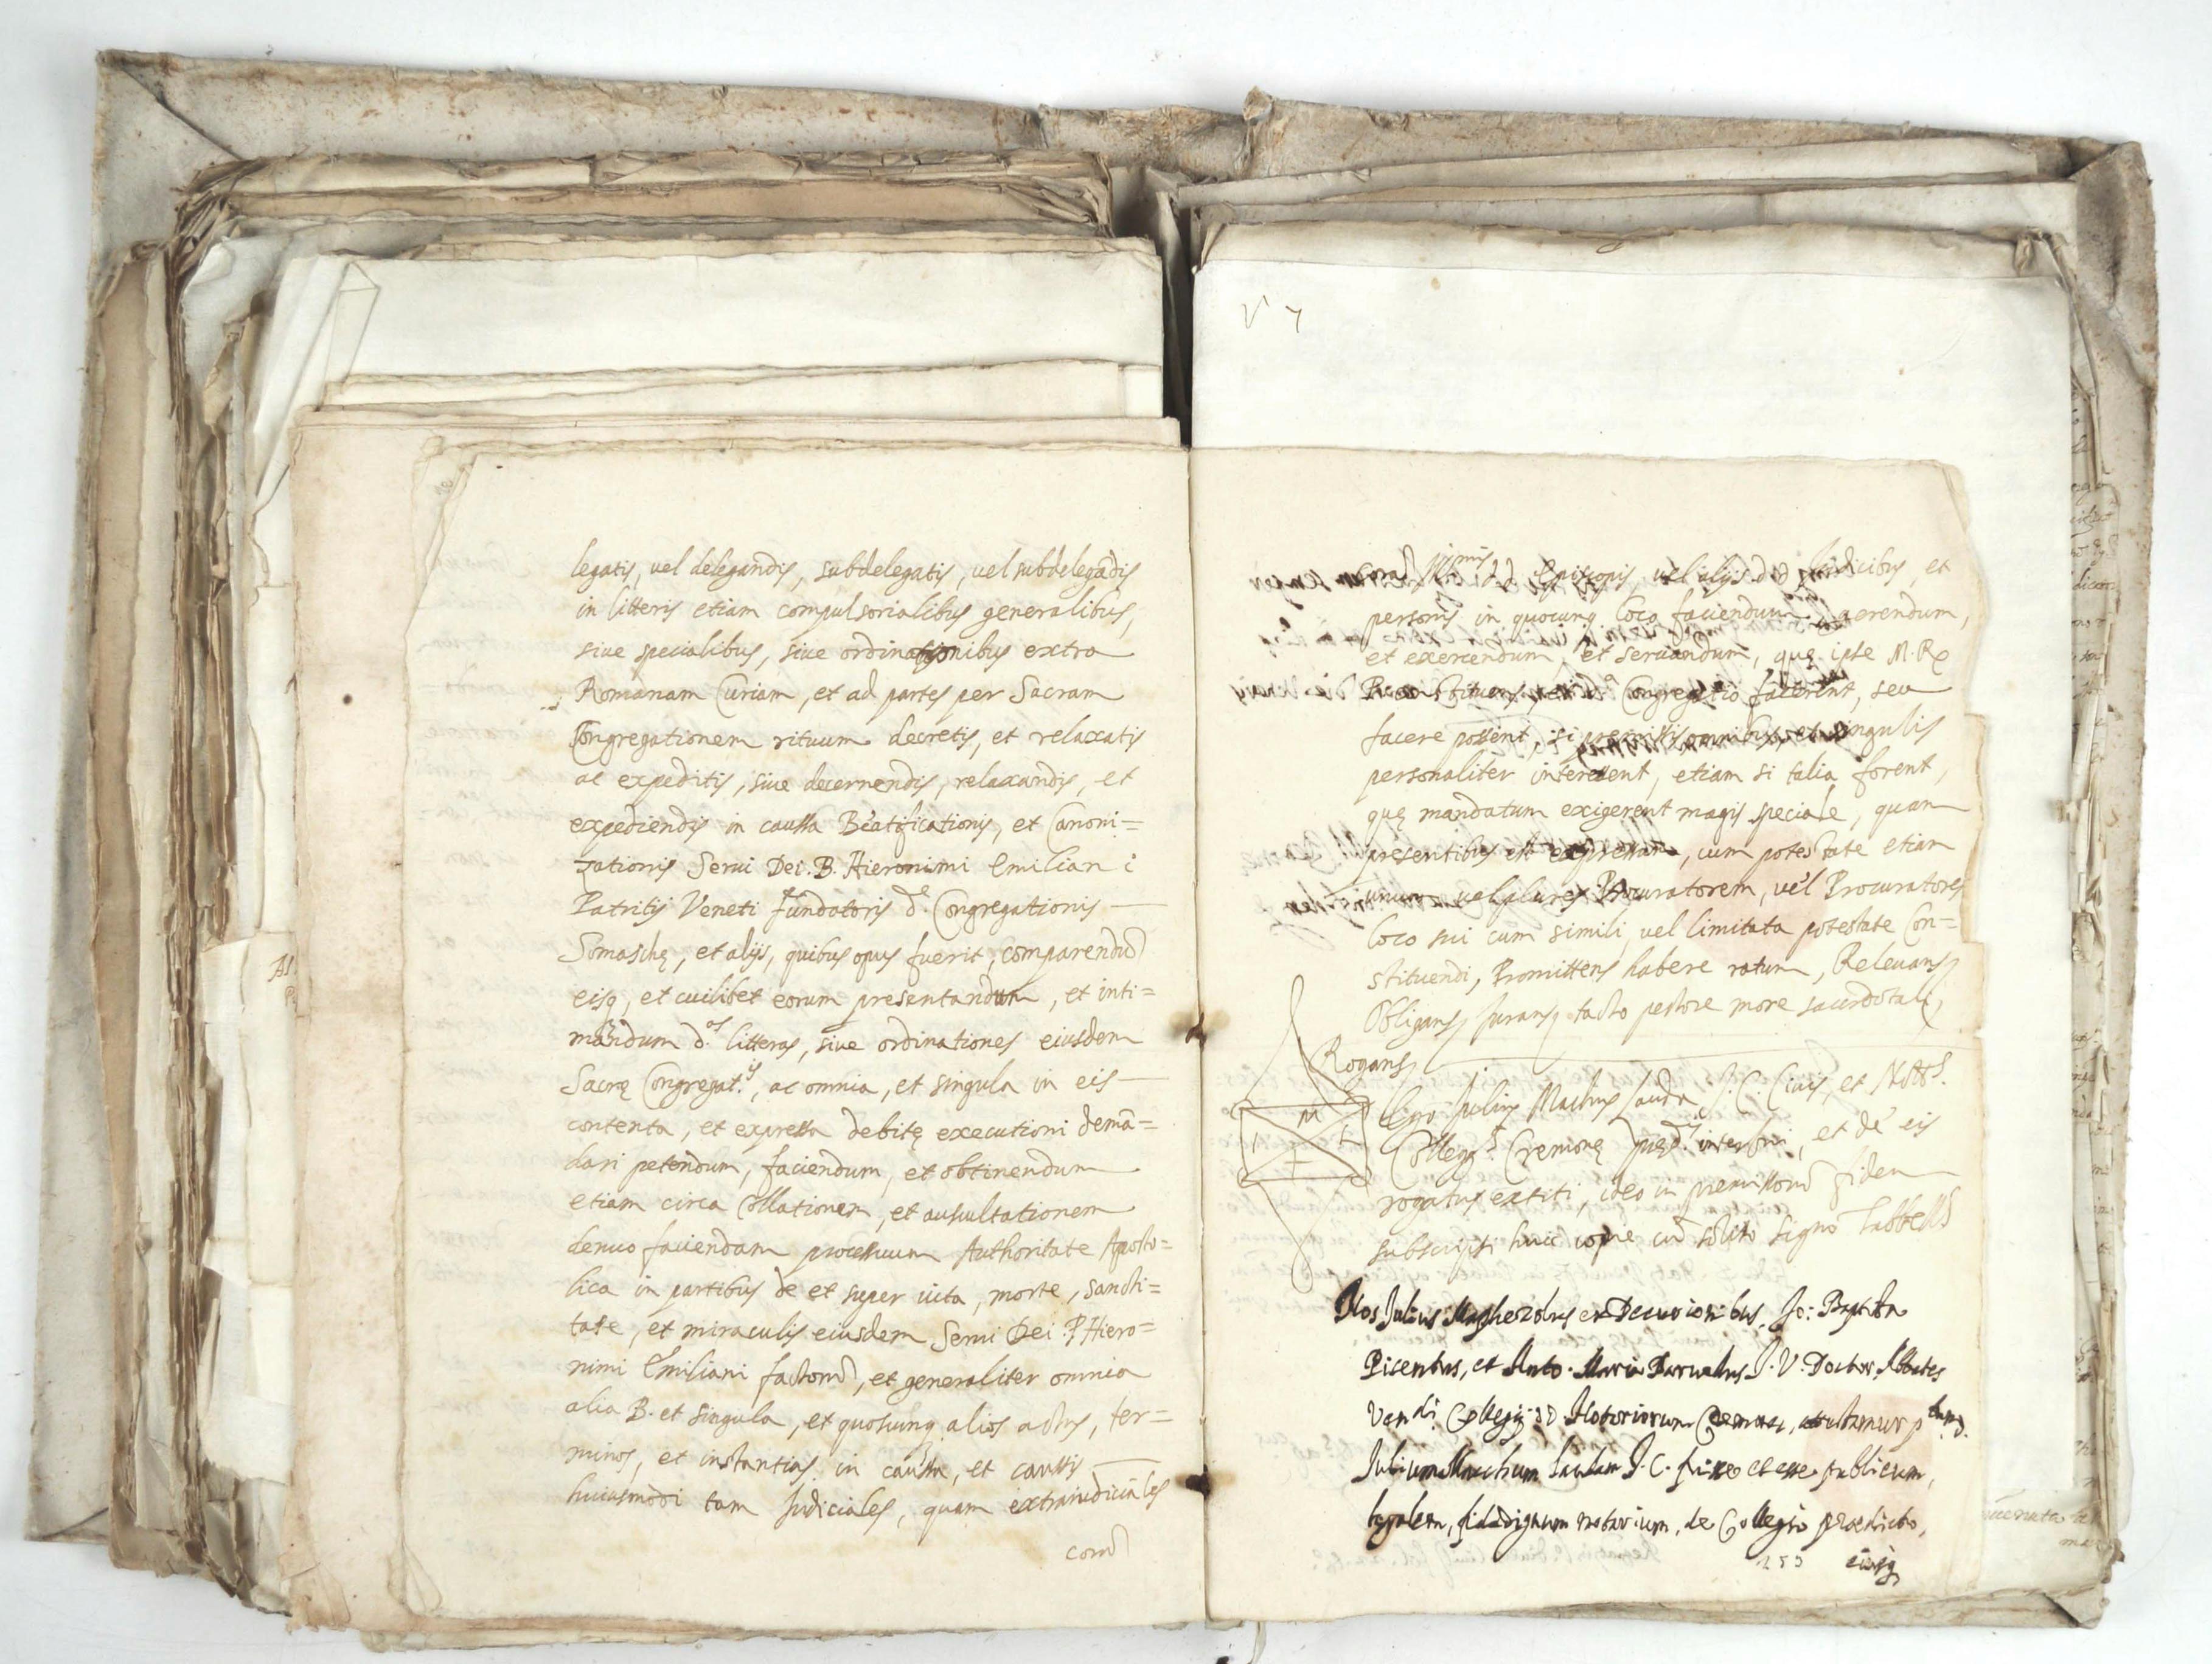 legatis, vel delegandis, subdelegatis, vel subdelegādis
in litteris etiam compulsorialibus generalibus,
sive specialibus, sive ordinationibus extra
Romanam Curiam, et ad partes per Sacram
Congregationem rituum decretis, et relaxatis
ac expeditis, sive decernendis, relaxandis, et
expediendis in caussa Beatificationis, et Canoni=
zationis Servi Dei B. Hieronimi Emiliani
Patritij Veneti fundatoris d.e Congregationis
Somaschę, et alijs, quibus opus fuerit, comparendū
eisq, et cuilibet eorum presentandum, et inti=
mandum d.as litteras, sive ordinationes eiusdem
Sacrę Congregat.is, ac omnia, et singula in eis
contenta, et expressa debitę executioni demā=
dari petendum, faciendum, et obtinendum
etiam circa Collationem, et auscultationem
denuo faciendam processuum Authoritate Aposto=
lica in partibus de et super vita, morte, sancti=
tate, et miraculis eiusdem Servi Dei P. Hiero=
nimi Emiliani factorū, et generaliter omnia
alia B. et singula, et quoscunq alios actus, ter=
minos, et instantias in caussa, et caussis
huiusmodi tam Judiciales, quam extraiudiciales
corā
V 7
Episcopis, vel alijs Judicibus, et
personis in quocunq loco faciendum, gerendum,
et exercendum, et servandum, quę ipse M. R.
Constituens, Congregatio facerent, seu
facere possent, si premissis omnibus, et singulis
personaliter interessent, etiam si talia forent,
quę mandatum exigerent magis speciale, quam
presentibus est expressum, cum potestate etiam
unum, vel plures Procuratorem, vel Procuratores
loco sui cum simili, vel limitata potestate Con=
stituendi, Promittens habere ratum, Relevans,
Obligans, Jurans, tacto pectore more sacerdotali,
Rogans,
Ego Julius Machius Lauda J. C. Civis, et Not.s
Collegij Cremonę pręd.is interfui, et de eis
rogatus extiti, ideo in premissorū fidem
subscripsi huic copie cū solito signo Tabbell.s
M
I L
Nos Julius ex Decurionibus, Jo: Baptista
Picenus, et Anto. Maria J. V. Doctor Abbates
Ven.di Collegij DD. Notariorum Cremonę, attestamur
Julium Machium Laudam J. C. fuisse et esse publicum,
legalem, fidedignum notarium, de Collegio praedicto,
253 eiusq